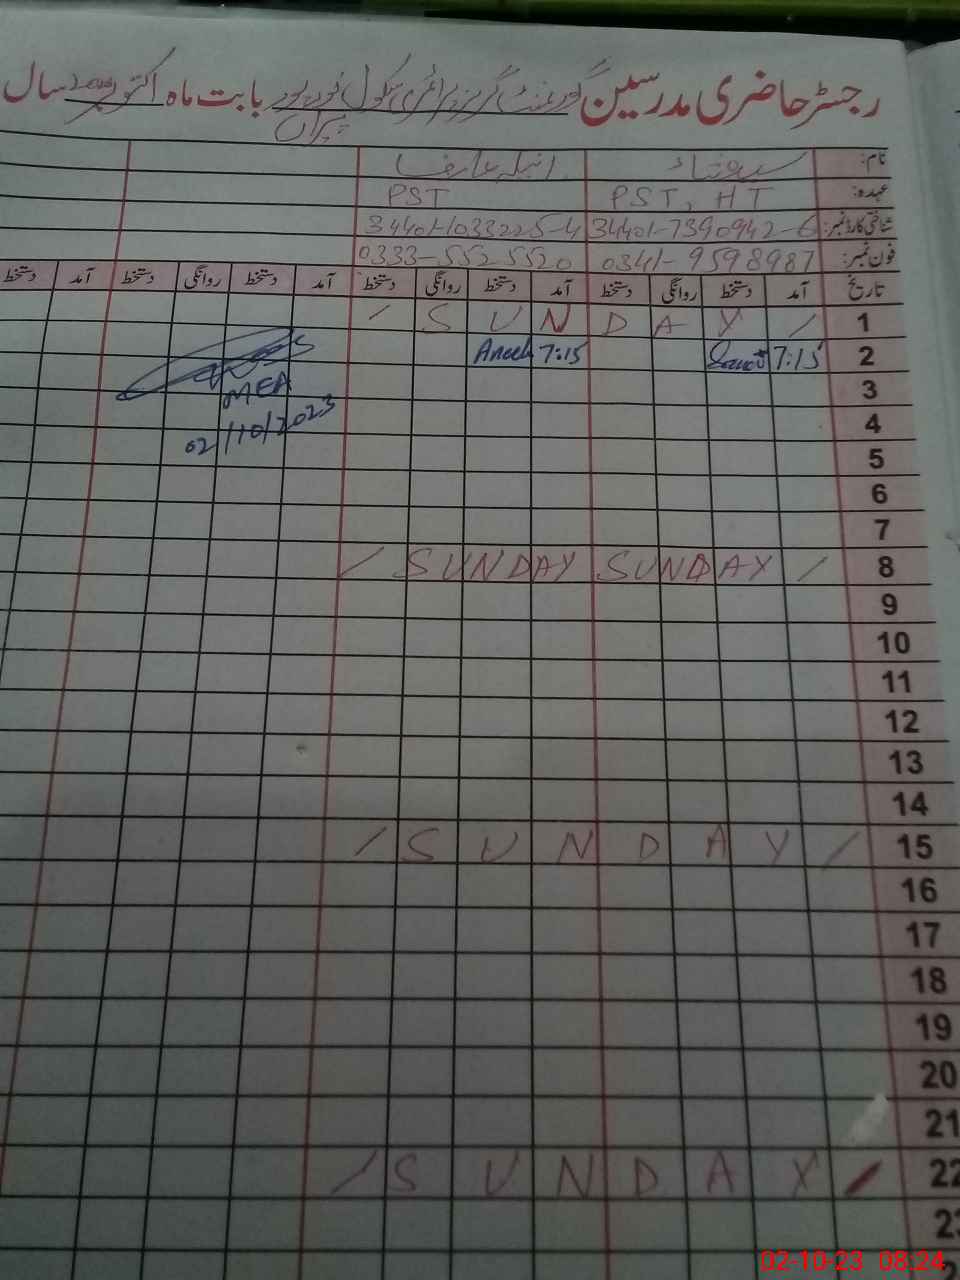 رجسٹر حاضری مدرسین گورنمنٹ گرلز پرائمری سکول نور پور پیراں بابت ماہ اکتوبر سال
نام: انیلہ عارف
عہدہ: PST, HT PST
شناختی کارڈ نمبر: 34401-7390942-6 34401-1033225-4
فون نمبر: 0341-9598987 0333-5525520
تاریخ آمد دستخط روانگی دستخط آمد دستخط روانگی دستخط آمد دستخط روانگی دستخط آمد دستخط
1 / S U N D A Y /
2 7:15 7:15 Aneela
3 MEA
4 02/10/2023
5
6
7
8 / SUNDAY SUNDAY /
9
10
11
12
13
14
15 / S U N D A Y /
16
17
18
19
20
21
22 / S U N D A Y /
23
02-10-23 08:24